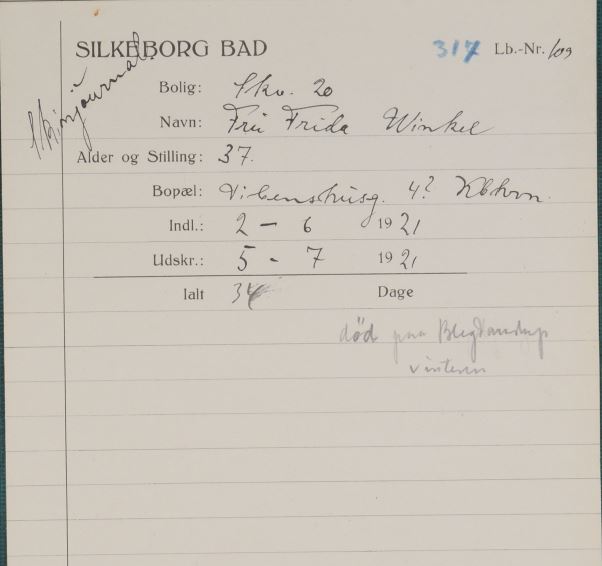 SILKEBORG BAD 317 Lb.-Nr. 109
Bolig: Skv. 20
Navn: Fru Frida Winkel
Alder og Stilling: 37.
Bopæl: Vibenshusg. 4? Kbhvn.
Indl.: 2 - 6 1921
Udskr.: 5 - 7 1921
Ialt 34 Dage
død paa
vinteren